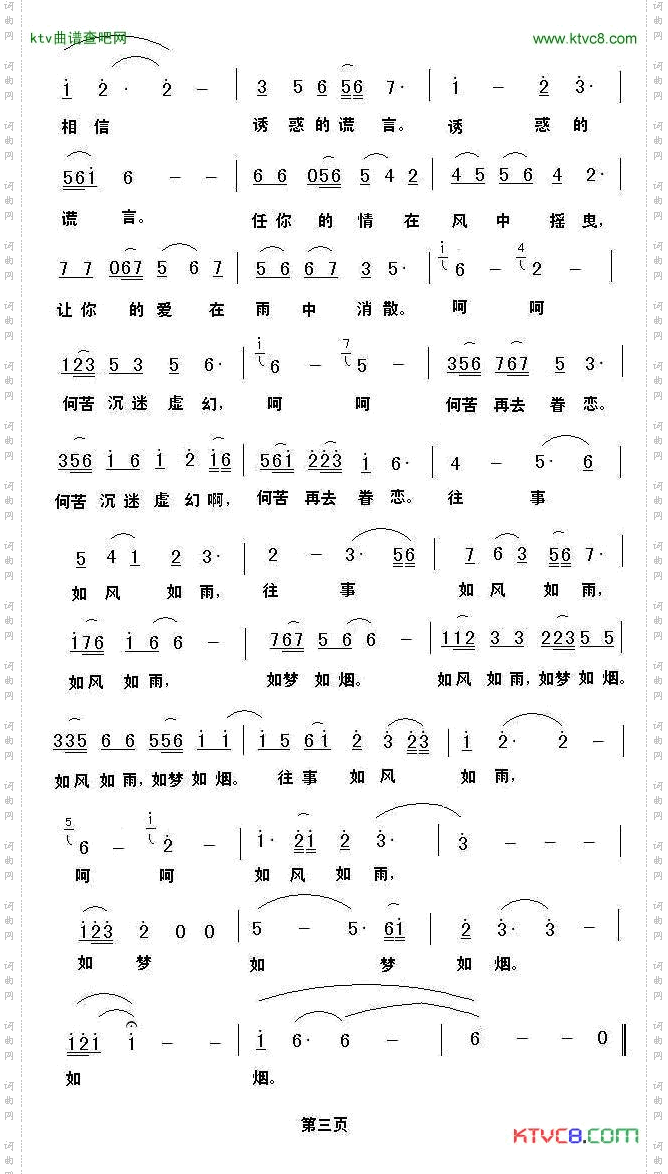 ktv曲谱查吧网 www.ktvc8.com
1 2· 2 － | 3 5 6 56 7· | 1 － 2 3·
相信 诱惑的谎言。诱 惑的
561 6 － － | 6 6 056 5 4 2 | 4 5 5 6 4 2· |
谎 言。 任你 的情在风中摇曳,
7 7 067 5 6 7 | 5 6 6 7 3 5· | 6 － 2 －
让你 的爱在雨中消散。呵 呵
123 5 3 5 6· | 6 － 5 － | 356 767 5 3· |
何苦沉迷虚幻, 呵 呵 何苦再去眷恋。
356 1 6 1 2 16 | 561 223 1 6· | 4 － 5· 6
何苦沉迷虚幻啊,何苦再去眷恋。往 事
5 4 1 2 3· | 2 － 3· 56 | 7 6 3 56 7· |
如风 如雨, 往 事 如风 如雨,
176 1 6 6 － | 767 5 6 6 － | 112 3 3 223 5 5 |
如风如雨, 如梦如烟。 如风如雨,如梦如烟。
335 6 6 556 1 1 | 1 5 6 1 2 3 23 | 1 2· 2 － |
如风如雨,如梦如烟。 往事 如风 如雨,
6 － 2 － | 1· 21 2 3· | 3 － － － |
呵 呵 如风如雨,
123 2 0 0 | 5 － 5· 61 | 2 3· 3 － |
如 梦 如 梦 如烟。
121 1 － － | 1 6· 6 － | 6 － － 0 ‖
如 烟。
第三页
KTVC8.COM
词曲网